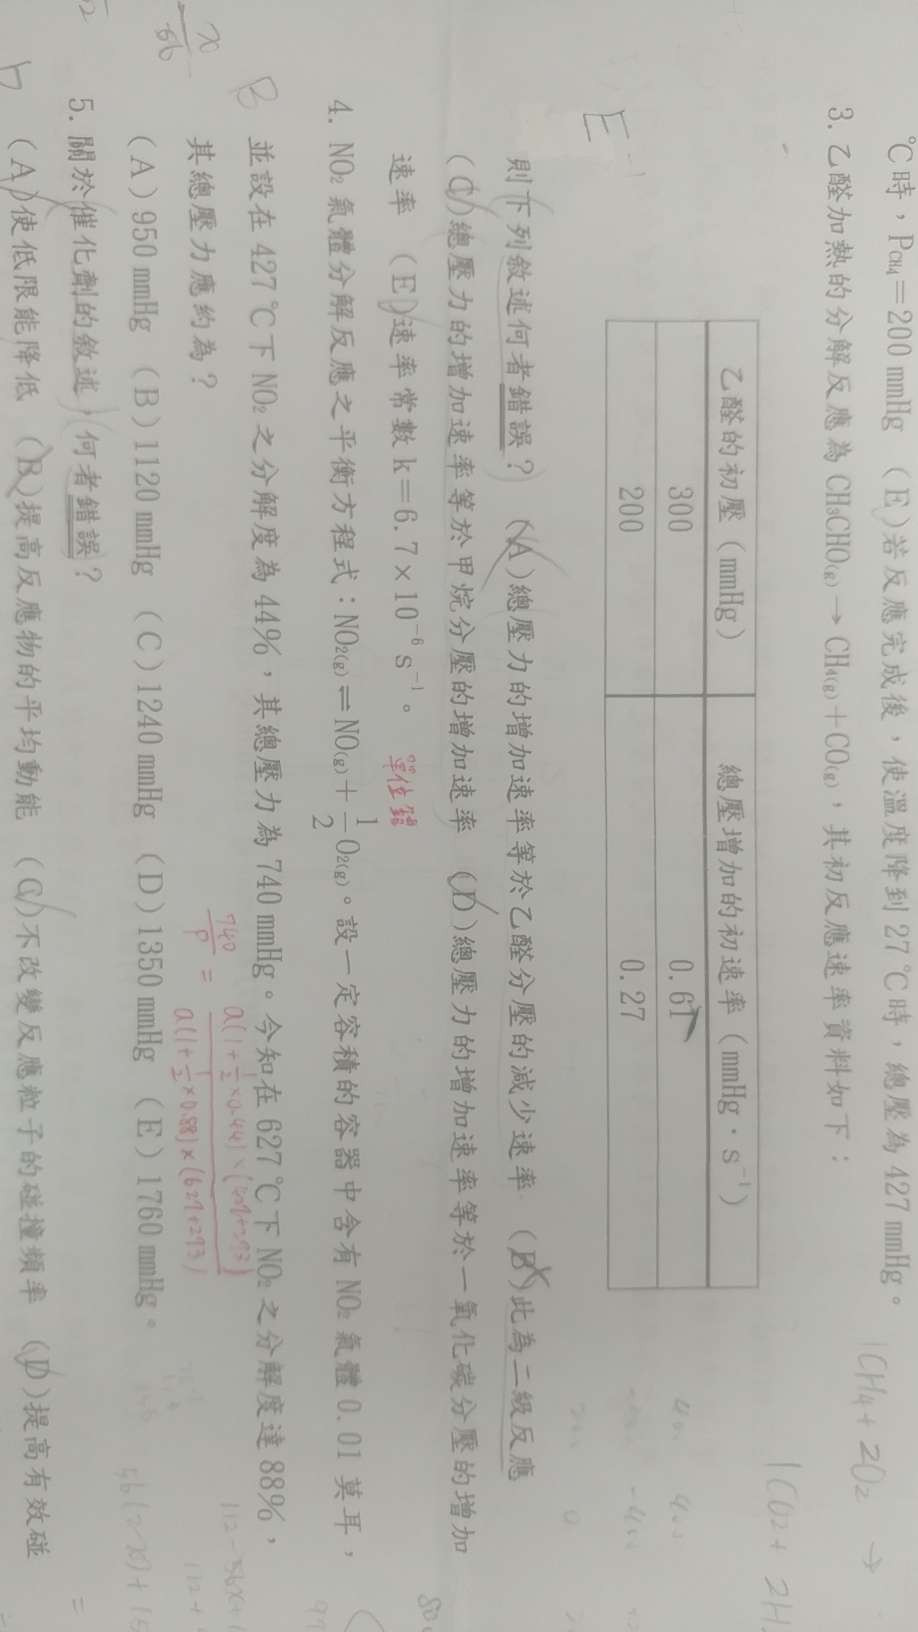 ℃時，PCH₄＝200 mmHg （E）若反應完成後，使溫度降到 27℃時，總壓為 427 mmHg。
1CH4 + 2O2 →
1CO2 + 2H
3. 乙醛加熱的分解反應為 CH₃CHO(g)→CH₄(g)＋CO(g)，其初反應速率資料如下：
乙醛的初壓（mmHg） 總壓增加的初速率（mmHg·s⁻¹）
300 0.61
200 0.27
E
則下列敘述何者錯誤？ （A）總壓力的增加速率等於乙醛分壓的減少速率 （B）此為二級反應
（C）總壓力的增加速率等於甲烷分壓的增加速率 （D）總壓力的增加速率等於一氧化碳分壓的增加
速率 （E）速率常數 k＝6.7×10⁻⁶ s⁻¹。
單位錯
4. NO₂ 氣體分解反應之平衡方程式：NO₂(g)⇌NO(g)＋1/2 O₂(g)。設一定容積的容器中含有 NO₂ 氣體 0.01 莫耳，
B
並設在 427℃下 NO₂ 之分解度為 44%，其總壓力為 740 mmHg。今知在 627℃下 NO₂ 之分解度達 88%，
其總壓力應約為？
740/P = a(1+1/2×0.44)×(427+273) / a(1+1/2×0.88)×(627+273)
（A）950 mmHg （B）1120 mmHg （C）1240 mmHg （D）1350 mmHg （E）1760 mmHg。
x/56
5. 關於催化劑的敘述，何者錯誤？
（A）使低限能降低 （B）提高反應物的平均動能 （C）不改變反應粒子的碰撞頻率 （D）提高有效碰